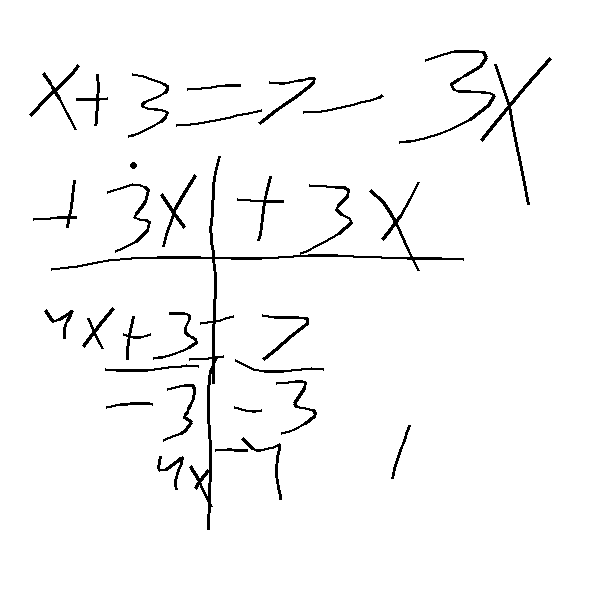 x+3=7-3x
+3x +3x
4x+3=7
-3 -3
4x=4